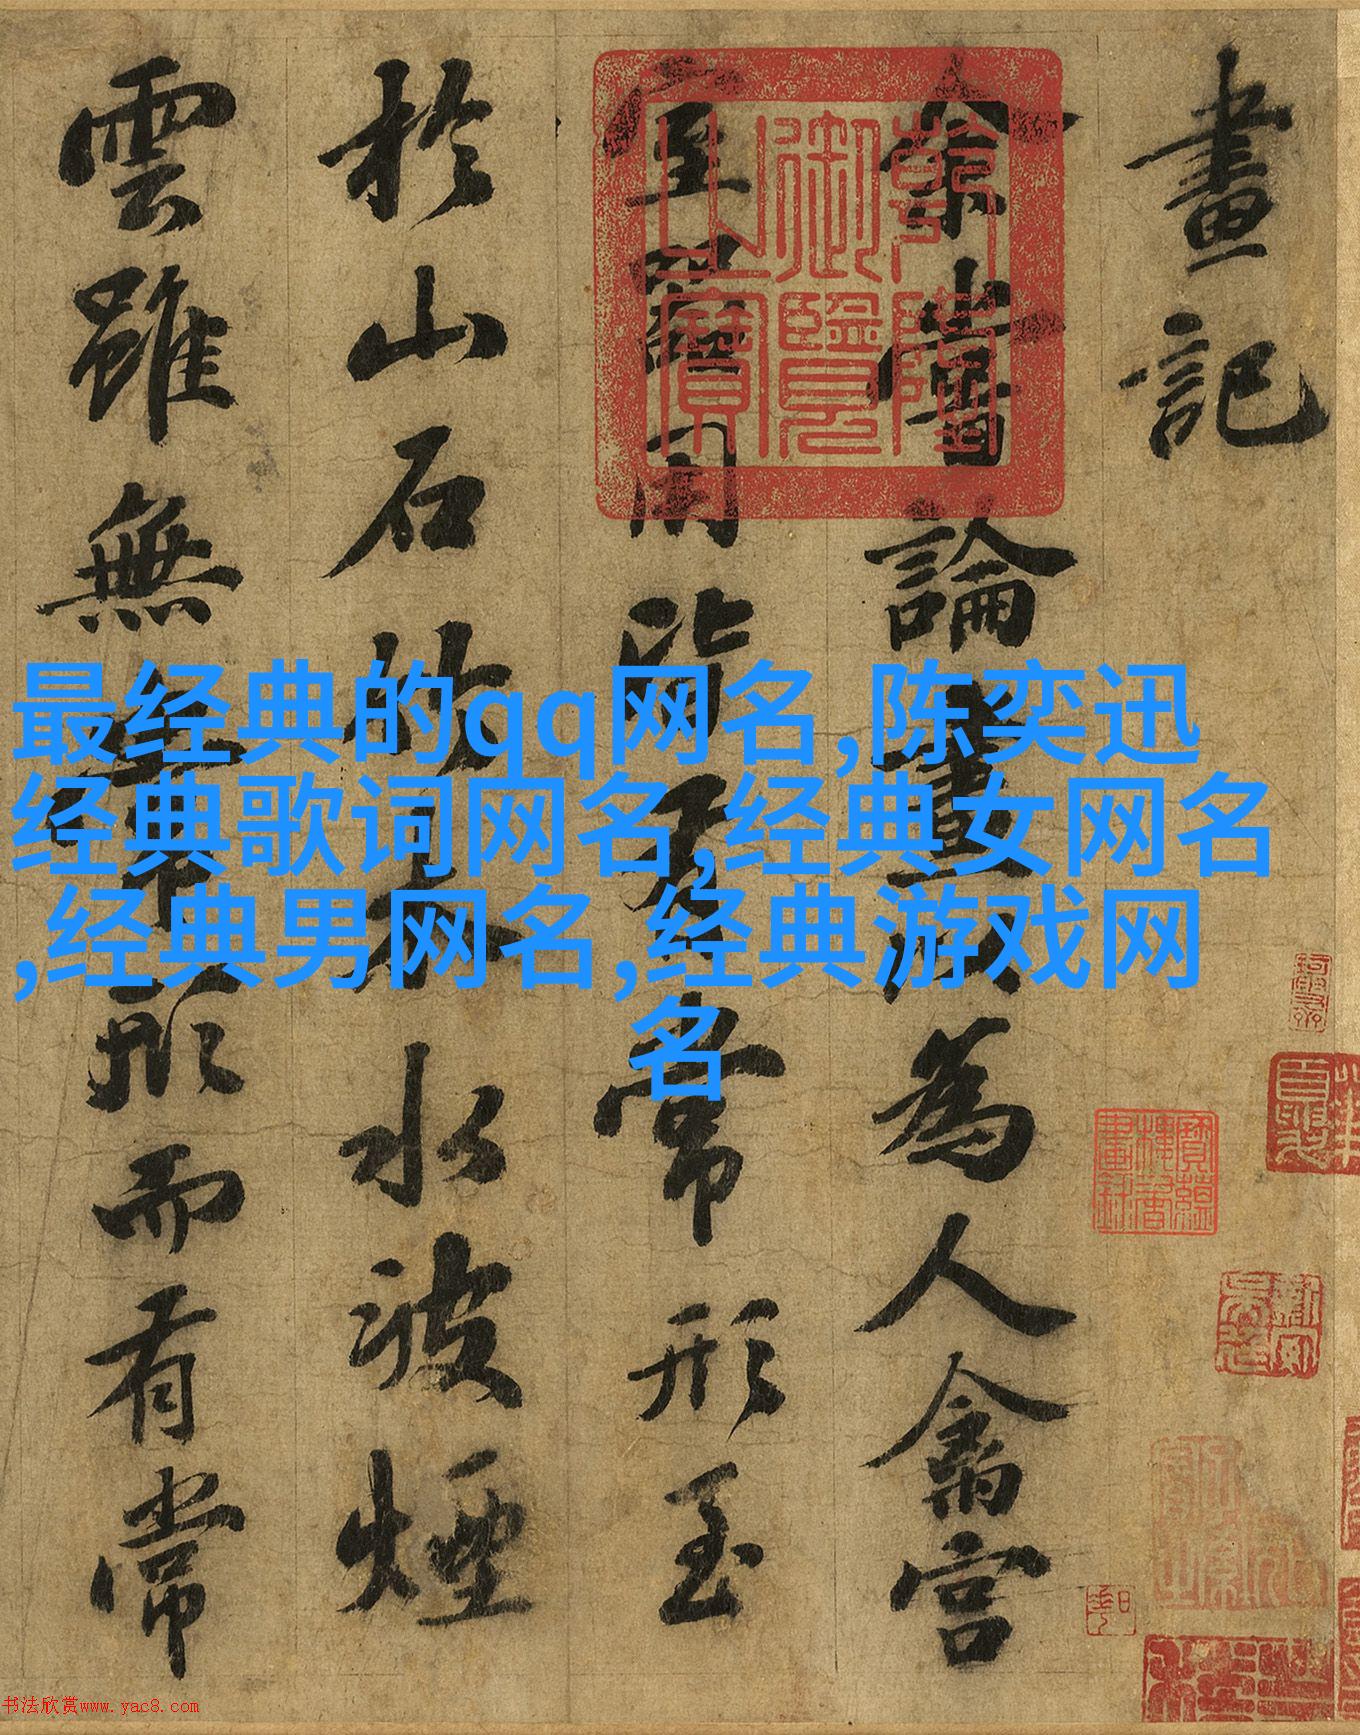 畫記
余嘗論畫以為人禽宮
室器用皆有常形至
於山石竹木水波煙
雲雖無常形而有常
乾隆
御覽
之寶
最经典的qq网名,陈奕迅
经典歌词网名,经典女网名
,经典男网名,经典游戏网
名
书法欣赏www.yac8.com